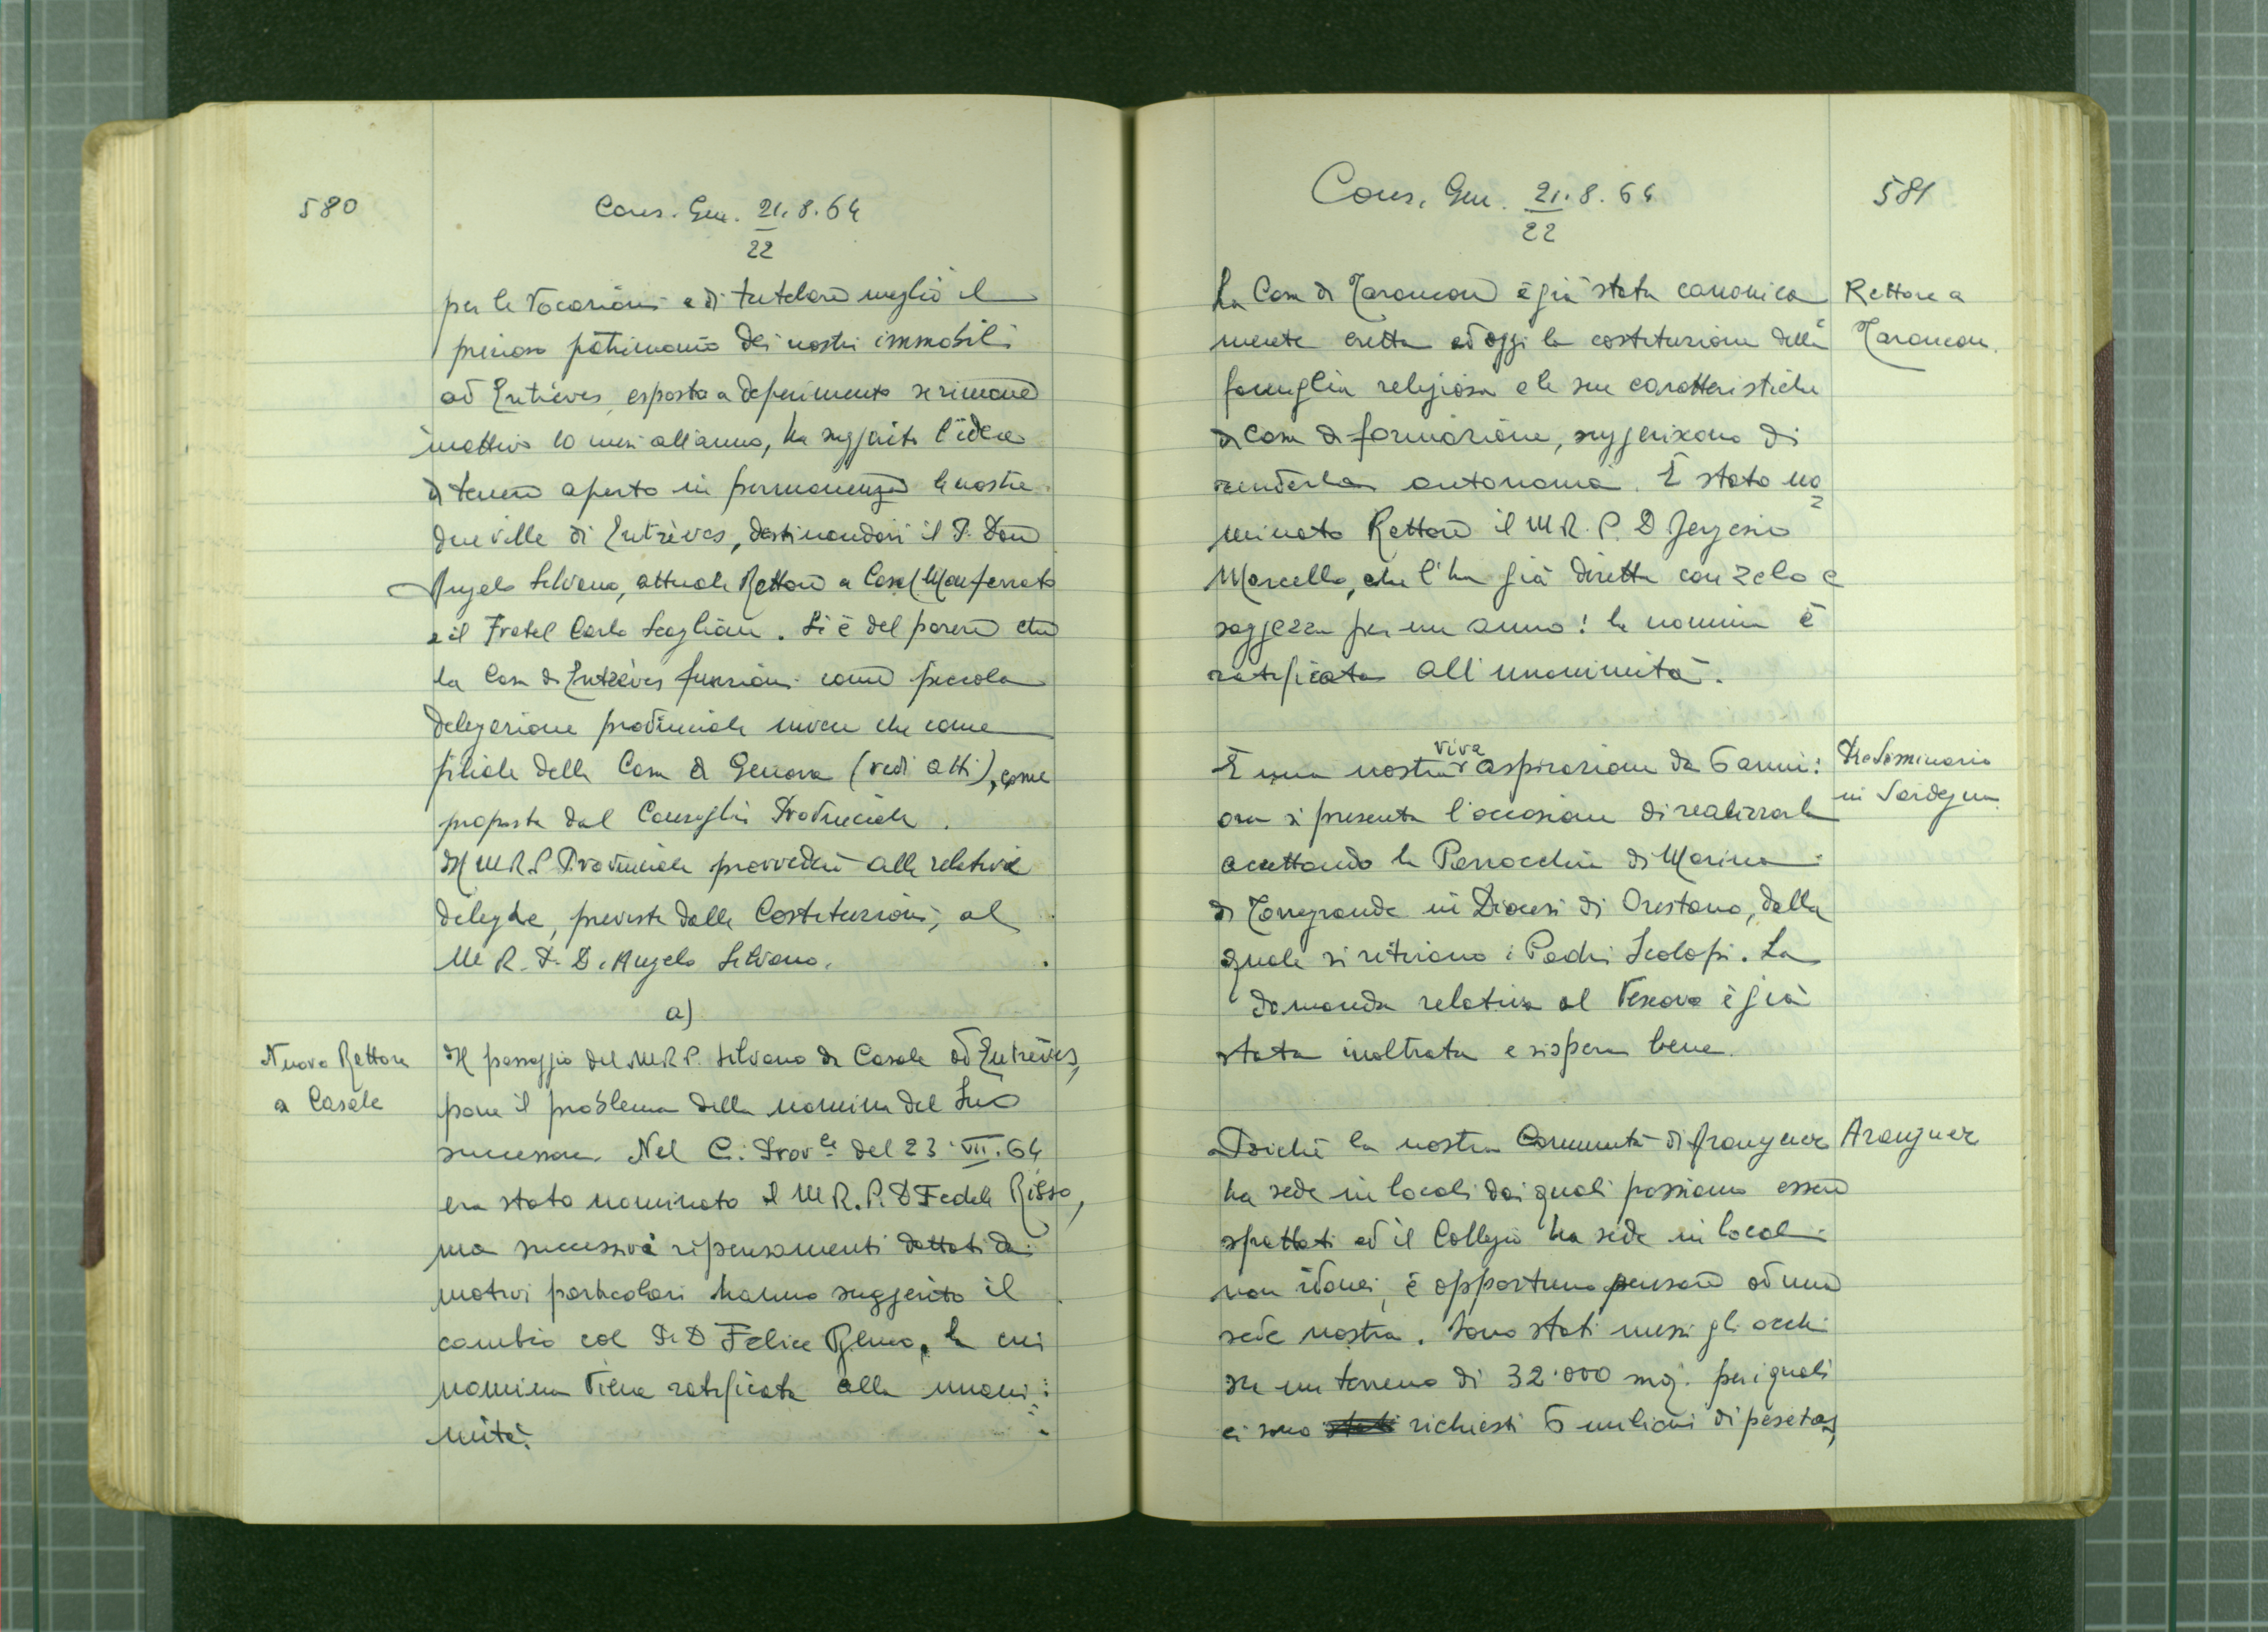 580
Cons. Gen. 21.8.64
22
per le Vocazioni e di tutelare meglio il
prezioso patrimonio dei nostri immobili
ad Entrèves, esposto a deperimento se rimane
inattivo 10 mesi all'anno, ha suggerito l'idea
di tenere aperto in permanenza le nostre
due ville di Entrèves, destinandovi il P. Don
Angelo Silvano, attuale Rettore a Casal Monferrato
e il Fratel Carlo Scaglione. Si è del parere che
la Casa di Entrèves funzioni come piccola
delegazione provinciale invece che come
filiale della Casa di Genova (vedi atti), come
proposta dal Consiglio Provinciale.
Il M.R.P. Provinciale provvederà alle relative
deleghe, previste dalle Costituzioni, al
M. R. P. D. Angelo Silvano.
a)
Nuovo Rettore
a Casale
Il passaggio del M.R.P. Silvano da Casale ad Entrèves,
pone il problema della nomina del Suo
successore. Nel C. Prov.le del 23.VII.64
era stato nominato il M.R.P. D Fedele Risso,
ma successivi ripensamenti dettati da
motivi particolari hanno suggerito il
cambio col P. D Felice, la cui
nomina viene ratificata alla unani=
mità.
Cons. Gen. 21.8.64
22
581
La Casa di Tarancon è già stata canonica=
mente eretta ed oggi la costituzione della
famiglia religiosa e le sue caratteristiche
di Casa di formazione, suggeriscono di
renderla autonoma. È stato no=
minato Rettore il M.R.P. D
Marcello, che l'ha già diretta con zelo e
saggezza per un anno! la nomina è
ratificata all'unanimità.
Rettore a
Tarancon.
È una nostra viva aspirazione da 6 anni:
ora si presenta l'occasione di realizzarla
accettando la Parrocchia di Marina
di Torregrande in Diocesi di Oristano, dalla
quale si ritirano i Padri Scolopi. La
domanda relativa al Vescovo è già
stata inoltrata e si spera bene.
PreSeminario
in Sardegna
Poiché la nostra Comunità di Aranjuez
ha sede in locali dai quali possiamo essere
sfrattati ed il Collegio ha sede in locali
non idonei, è opportuno pensare ad una
sede nostra. Sono stati messi gli occhi
su un terreno di 32.000 mq. per i quali
ci sono stati richiesti 6 milioni di pesetas,
Aranjuez